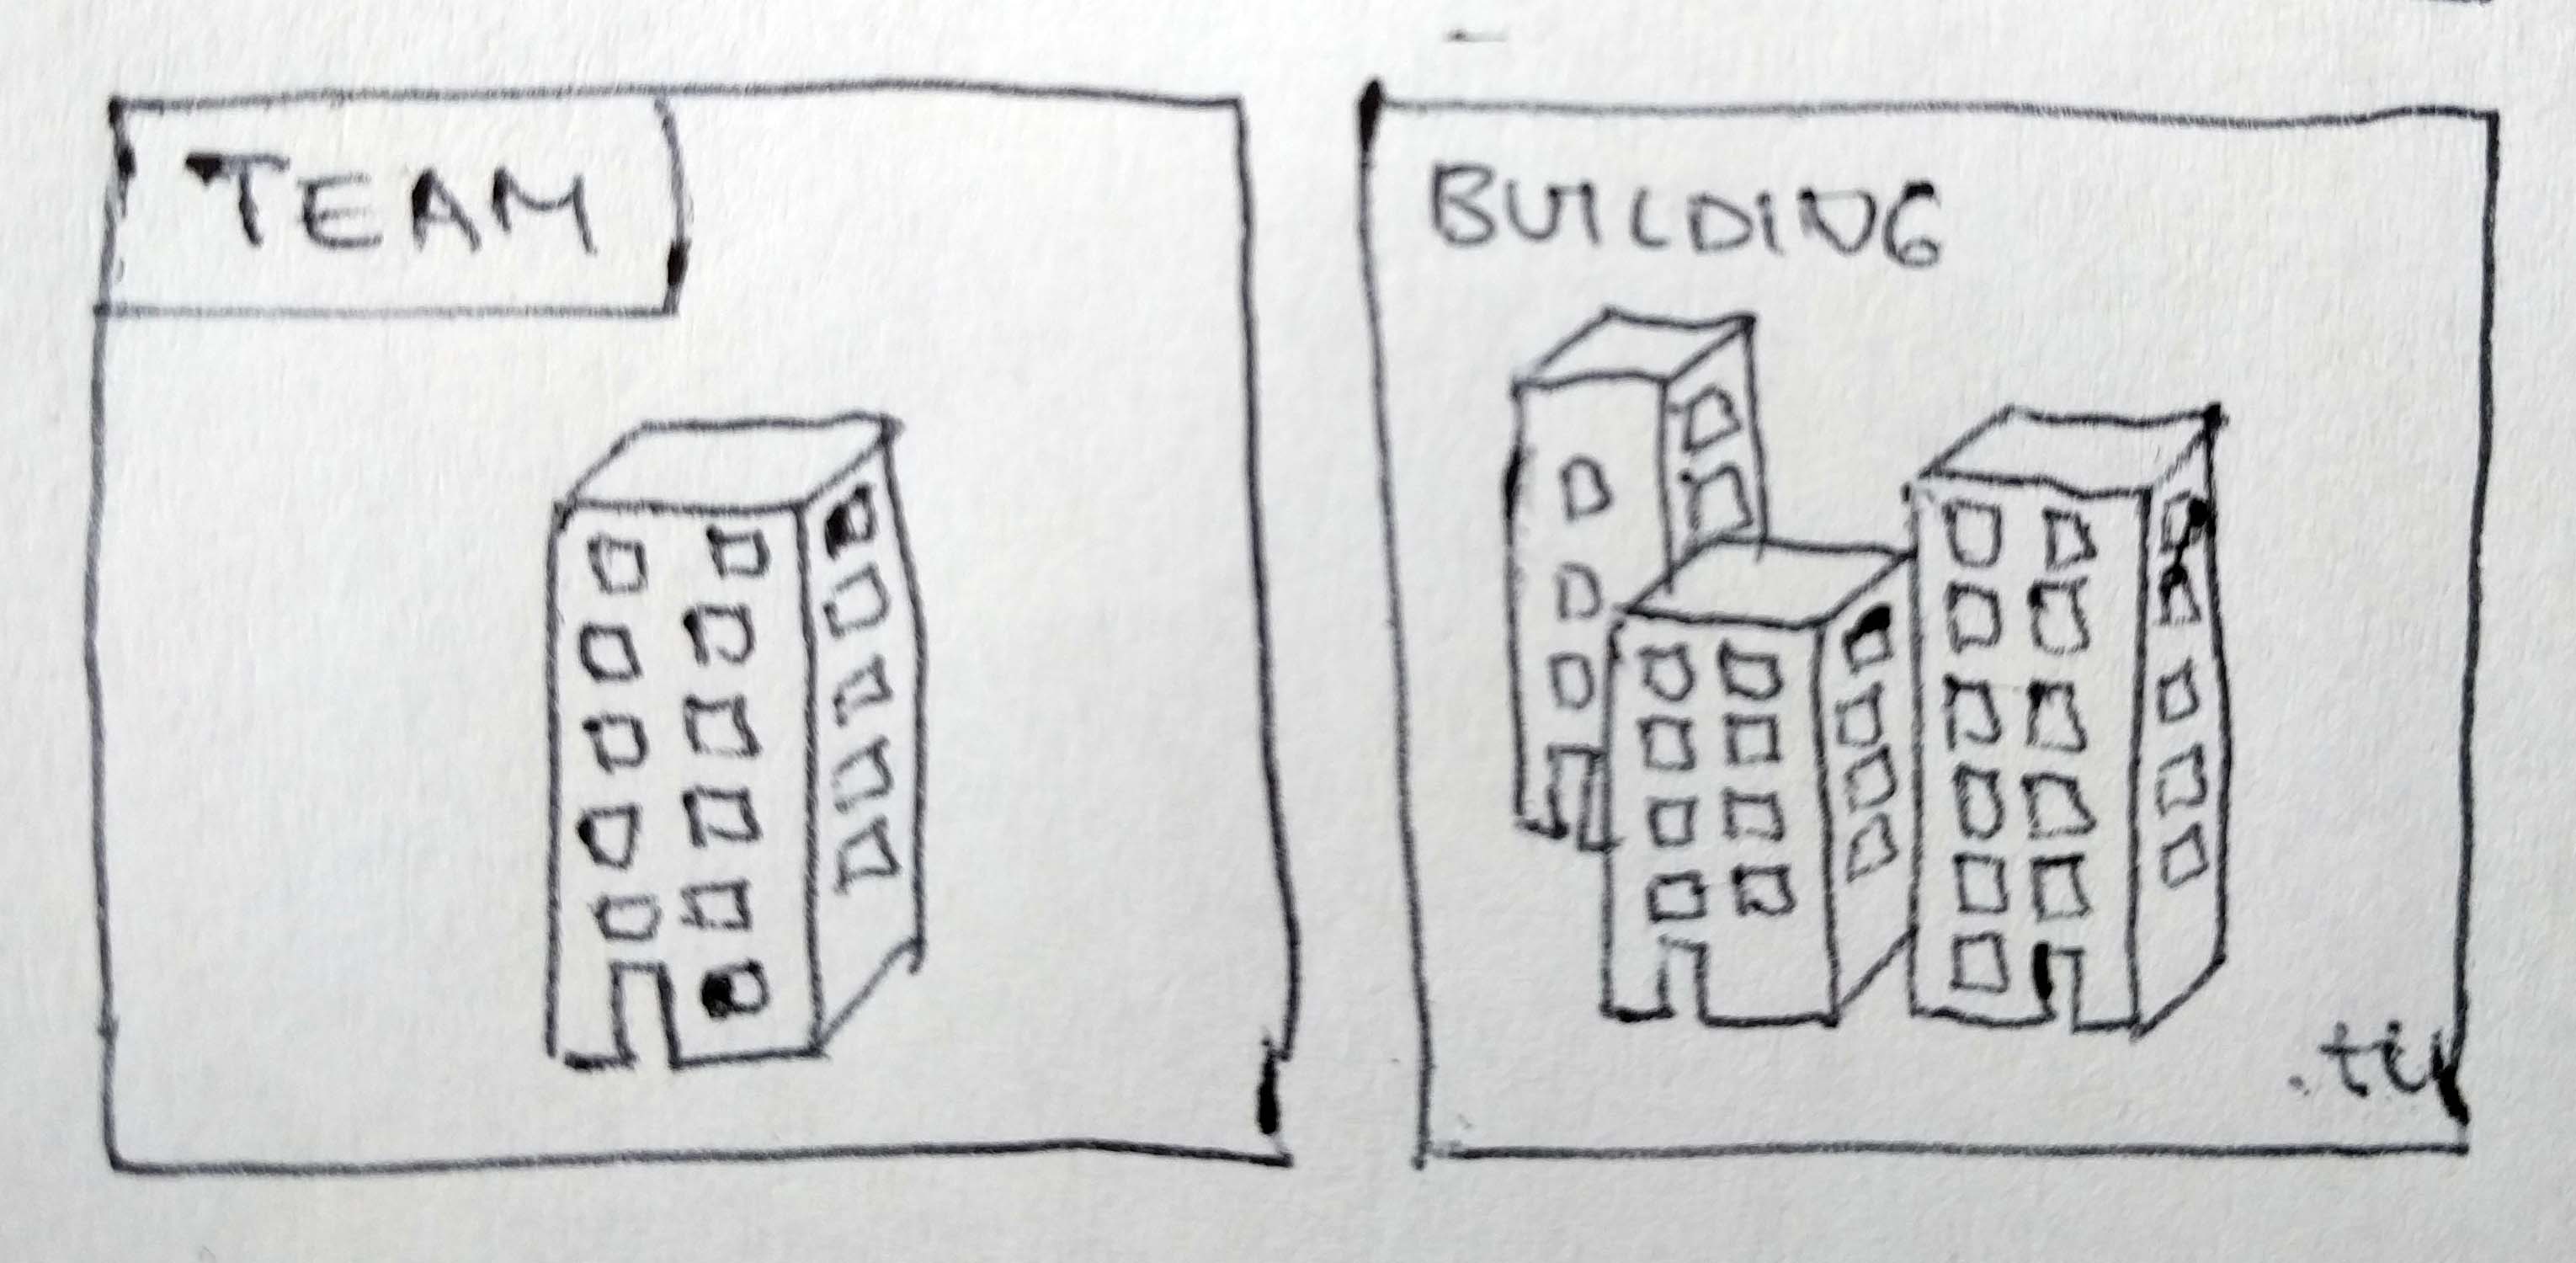 TEAM
BUILDING